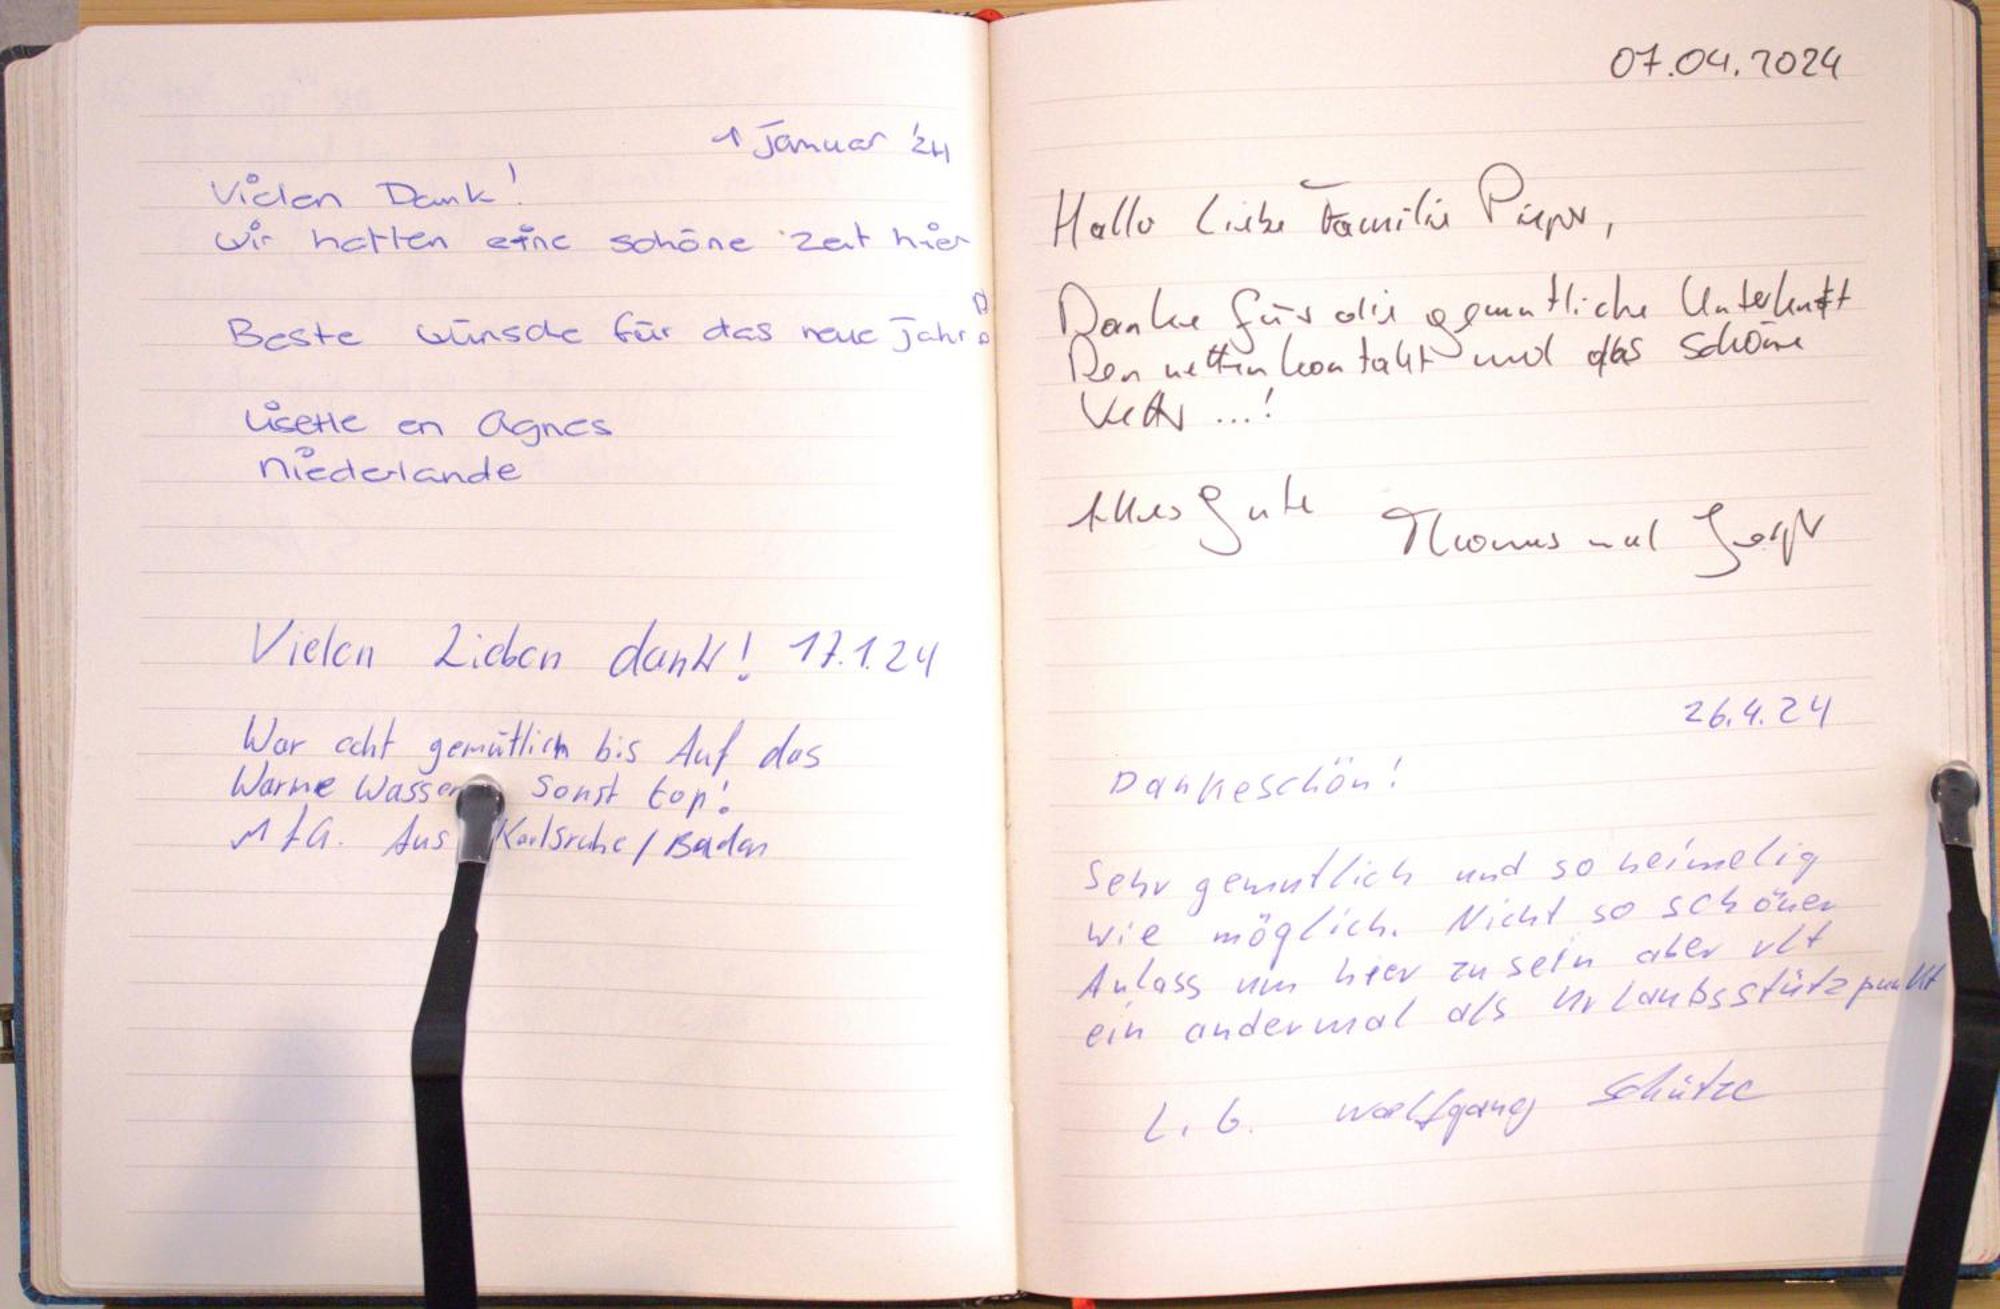 1 Januar '24
Vielen Dank!
wir hatten eine schöne Zeit hier
Beste wünsche für das neue Jahr!
Lisette en Agnes
Niederlande
Vielen Lieben dank! 17.1.24
War echt gemütlich bis Auf das
Warme Wasser Sonst top!
MfG. Aus Karlsruhe/Baden
07.04.2024
Hallo Liebe Familie Pieper,
Danke für die gemütliche Unterkunft
Den netten Kontakt und das schöne
...!
Alles Gute Thomas und
26.4.24
Dankeschön!
Sehr gemütlich und so heimelig
wie möglich. Nicht so schöner
Anlass um hier zu sein aber vlt
ein andermal als Urlaubsstützpunkt
L.G. Wolfgang Schütze